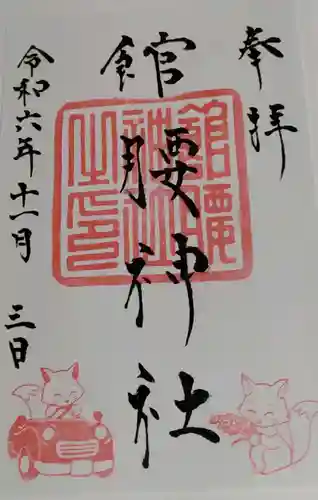 奉拝
館腰神社
館腰神社之印
令和六年十一月三日